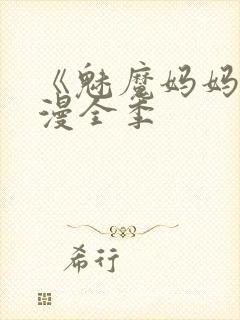 《魅魔妈妈
漫全季
希行